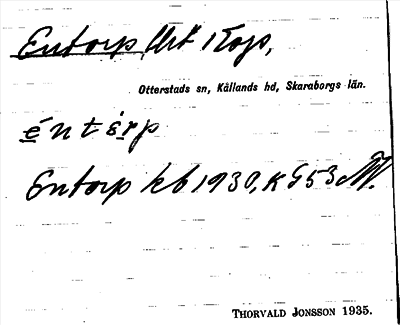 Entorp Urk Kops,
Otterstads sn, Kållands hd, Skaraborgs län.
éntèrp
Entorp kb 1930, K G53
THORVALD JONSSON 1935.